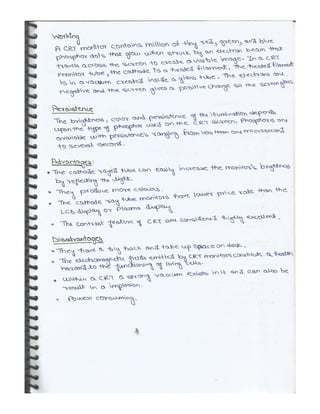 Working
A CRT monitor contains million of tiny red, green, and blue
phosphor dots that glow when struck by an electron beam that
travels across the screen to create a visible image. In a CRT
monitor tube, the cathode is a heated filament. The heated filament
is in a vacuum created inside a glass tube. The electrons are
negative and the screen gives a positive charge so the screen glows
Persistence
The brightness, color and persistence of the illumination depends
upon the type of phosphor used on the CRT screen. Phosphors are
available with persistences ranging from less than one microsecond
to several second.
Advantages:
• The cathode rayed tube can easily increase the monitor's brightness
by repeating the light.
• They produce more colours.
• The cathode ray tube monitors have lower price rate than the
LCD display or Plasma display
• The contrast feature of CRT are considered highly excellent.
Disadvantages
• They have a big back and take up space on desk.
• The electromagnetic fields emitted by CRT monitors constitute a health
hazard to the functioning of living cells.
• Within a CRT a strong vacuum exists in it and can also be
result in a implosion.
• Power consuming.